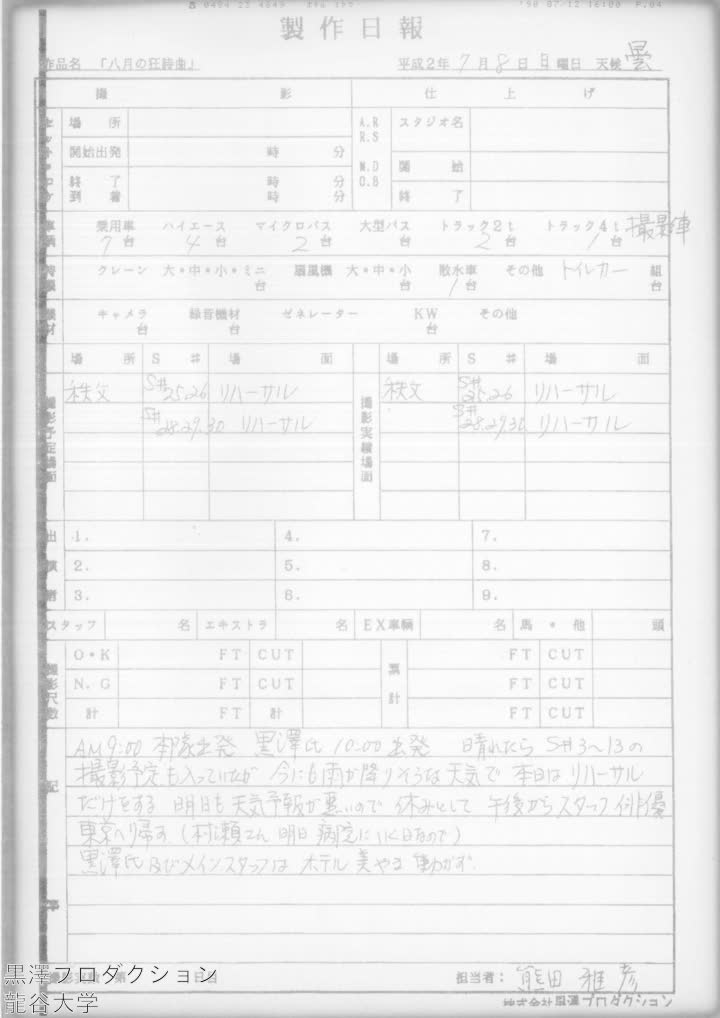 ☎ 0494 22 4649 '90 07/12 16:00 P.04
製作日報
作品名 「八月の狂詩曲」 平成2年 7月 8日 日曜日 天候 曇
撮 影 仕 上 げ
場 所 A.R R.S スタジオ名
開始出発 時 分
終 了 到 着 時 分 M.D O.B 開 始
終 了
乗用車 ハイエース マイクロバス 大型バス トラック2t トラック4t 撮影車
7台 4台 2台 台 2台 1台
クレーン 大・中・小・ミニ 扇風機 大・中・小 散水車 その他 トイレカー 組
台 台 1台 台
キャメラ 録音機材 ゼネレーター KW その他
台 台 台
場 所 S # 場 面 場 所 S # 場 面
撮影予定場面 撮影実績場面
秩父 S#25.26 リハーサル 秩父 S#25.26 リハーサル
S#28.29.30 リハーサル S#28.29.30 リハーサル
出演者 1. 4. 7.
2. 5. 8.
3. 6. 9.
スタッフ 名 エキストラ 名 EX車輌 名 馬・他 頭
撮影尺数 O・K FT CUT 累計 FT CUT
N.G FT CUT FT CUT
計 FT 計 FT CUT
記
AM9:00 本隊出発 黒澤氏 10:00 出発 晴れたら S#3〜13の
撮影予定も入っていたが 今にも雨が降りそうな天気で 本日は リハーサル
だけをする 明日も天気予報が悪いので 休みとして 午後からスタッフ 俳優
東京へ帰す (村瀬さん 明日 病院にいく日なので)
黒澤氏及びメインスタッフは ホテル 美やま 動かず.
撮影実数 第 日目 担当者: 熊田雅彦
株式会社黒澤プロダクション
黒澤プロダクション
龍谷大学